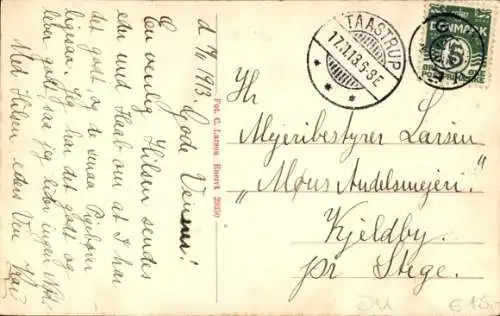 d. 17/11 1913. Gode Venner!
En venlig Hilsen sendes
eder med Haab om at I har
det godt, og de smaa Pigebørn
ligesaa. Jeg har det godt og
lever godt, saa jeg lider ingen Nød.
Med Hilsen eders Ven Kai
Fot. C. Larsen Eneret 20350
TAASTRUP
17.11.13.6-8E
DANMARK
5
Hr:
Mejeribestyrer Larsen
"Møns Andelsmejeri."
Kjeldby.
pr Stege.
DU €150